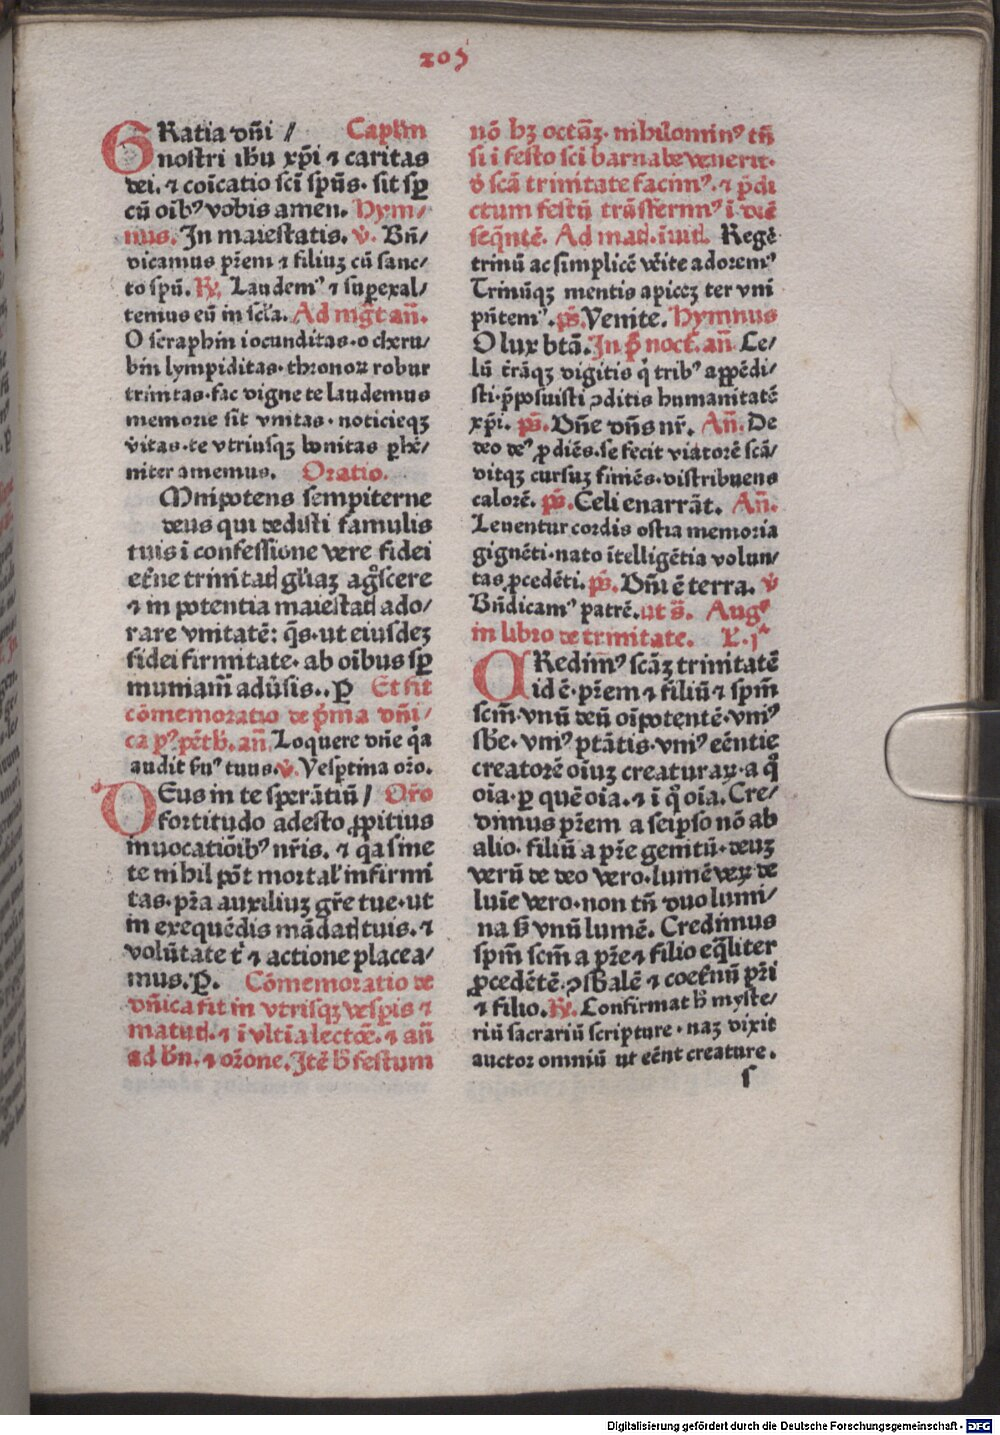 205
GRatia dñi / Caplm
nostri ihu xp̄i ⁊ caritas
dei. ⁊ cōicatio sci sp̄us. sit sp̄
cū oib⁹ vobis amen. Hym/
nus. In maiestatis. v̄. Bn̄/
dicamus pr̄em ⁊ filiuȝ cū sanc/
to spū. R̄. Laudem⁹ ⁊ supexal/
temus eū in scl̄a. Ad mḡt an̄.
O seraphin iocunditas. o cheru/
bin lympiditas. thronoꝝ robur
trinitas. fac digne te laudemus
memorie sit vnitas. noticieqȝ
v̄itas. te vtriusqȝ bonitas phē/
niter amemus. Oratio.
Mnipotens sempiterne
deus qui dedisti famulis
tuis i confessione vere fidei
et̄ne trinitatꝭ gl̄iaȝ agn̄scere
⁊ in potentia maiestatꝭ ado/
rare vnitatē: q̄s. ut eiusdeȝ
fidei firmitate. ab oibus sp̄
muniam̄ adūsis.. P̱ Et fit
cōmemoratio de p̄ma dn̄i/
ca p⁹ pēth. an̄. Loquere dn̄e q̄a
audit fu⁹ tuus. v̄. Vesptina oro.
DEus in te sperātiū / Or̄o
fortitudo adesto ꝓpitius
inuocatiōib⁹ nr̄is. ⁊ q̄a sine
te nihil pōt mortal' infirmi
tas. p̄ta auxiliuȝ gr̄e tue. ut
in exequēdis mādatꝭ tuis. ⁊
volūtate t' ⁊ actione placea/
mus. P̱. Cōmemoratio de
dn̄ica fit in vtrisqȝ vesꝑis ⁊
matutꝭ. ⁊ i vltīa lectōe. ⁊ an̄
ad bn̄. ⁊ or̄one. Itē h̄ festum
nō hȝ octāȝ. nihilomin⁹ tn̄
si i festo sci barnabe venerit.
d' scā trinitate facim⁹. ⁊ p̄di
ctum festū trāsferim⁹ i diē
seq̄ntē. Ad matꝭ. īuitꝭ. Regē
trinū ac simplicē v̄ite adorem⁹
Trinūqȝ mentis apiceȝ ter vni
pn̄tem⁹. ps̄. Venite. Hymnus
O lux btā. In p̄ noct'. an̄ Ce/
lū t̄rāqȝ digitis q̄ trib⁹ appēdi/
sti. p̄posuisti ꝯditis humanitatē
xp̄i. ps̄. Dn̄e dn̄s nr̄. An̄. De
deo de⁹ ꝓdiēs. se fecit viatorē scā/
ditqȝ cursuȝ finiēs. distribuens
calorē. ps̄. Celi enarrāt. An̄.
Leuentur cordis ostia memoria
gignēti. nato ītelligētia volun/
tas ꝓcedēti. ps̄. Dn̄i ē terra. v̄
Bn̄dicam⁹ patrē. ut s̄. Aug⁹
in libro de trinitate. L. jᵃ
CRedim⁹ scāȝ trinitatē
id ē. pr̄em ⁊ filiū ⁊ spm̄
scm̄. vnū deū oīpotentē. vni⁹
sb̄e. vni⁹ ptātis. vni⁹ eēntie
creatorē oīuȝ creaturaꝝ. a q̄
oīa. ꝑ quē oīa. ⁊ i q̄ oīa. Cre/
dimus pr̄em a seipso nō ab
alio. filiū a pr̄e genitū. deuȝ
verū de deo vero. lumē veꝝ de
luīe vero. non tn̄ duo lumi/
na s̄ vnū lumē. Credimus
spm̄ scm̄ a pr̄e ⁊ filio eq̄liter
ꝓcedētē. ꝯsb̄alē ⁊ coet̄nū pr̄i
⁊ filio. R̄. Confirmat h̄ myste/
riū sacrariū scripture. naȝ dixit
auctor omniū ut eēnt creature.
s
Digitalisierung gefördert durch die Deutsche Forschungsgemeinschaft - DFG